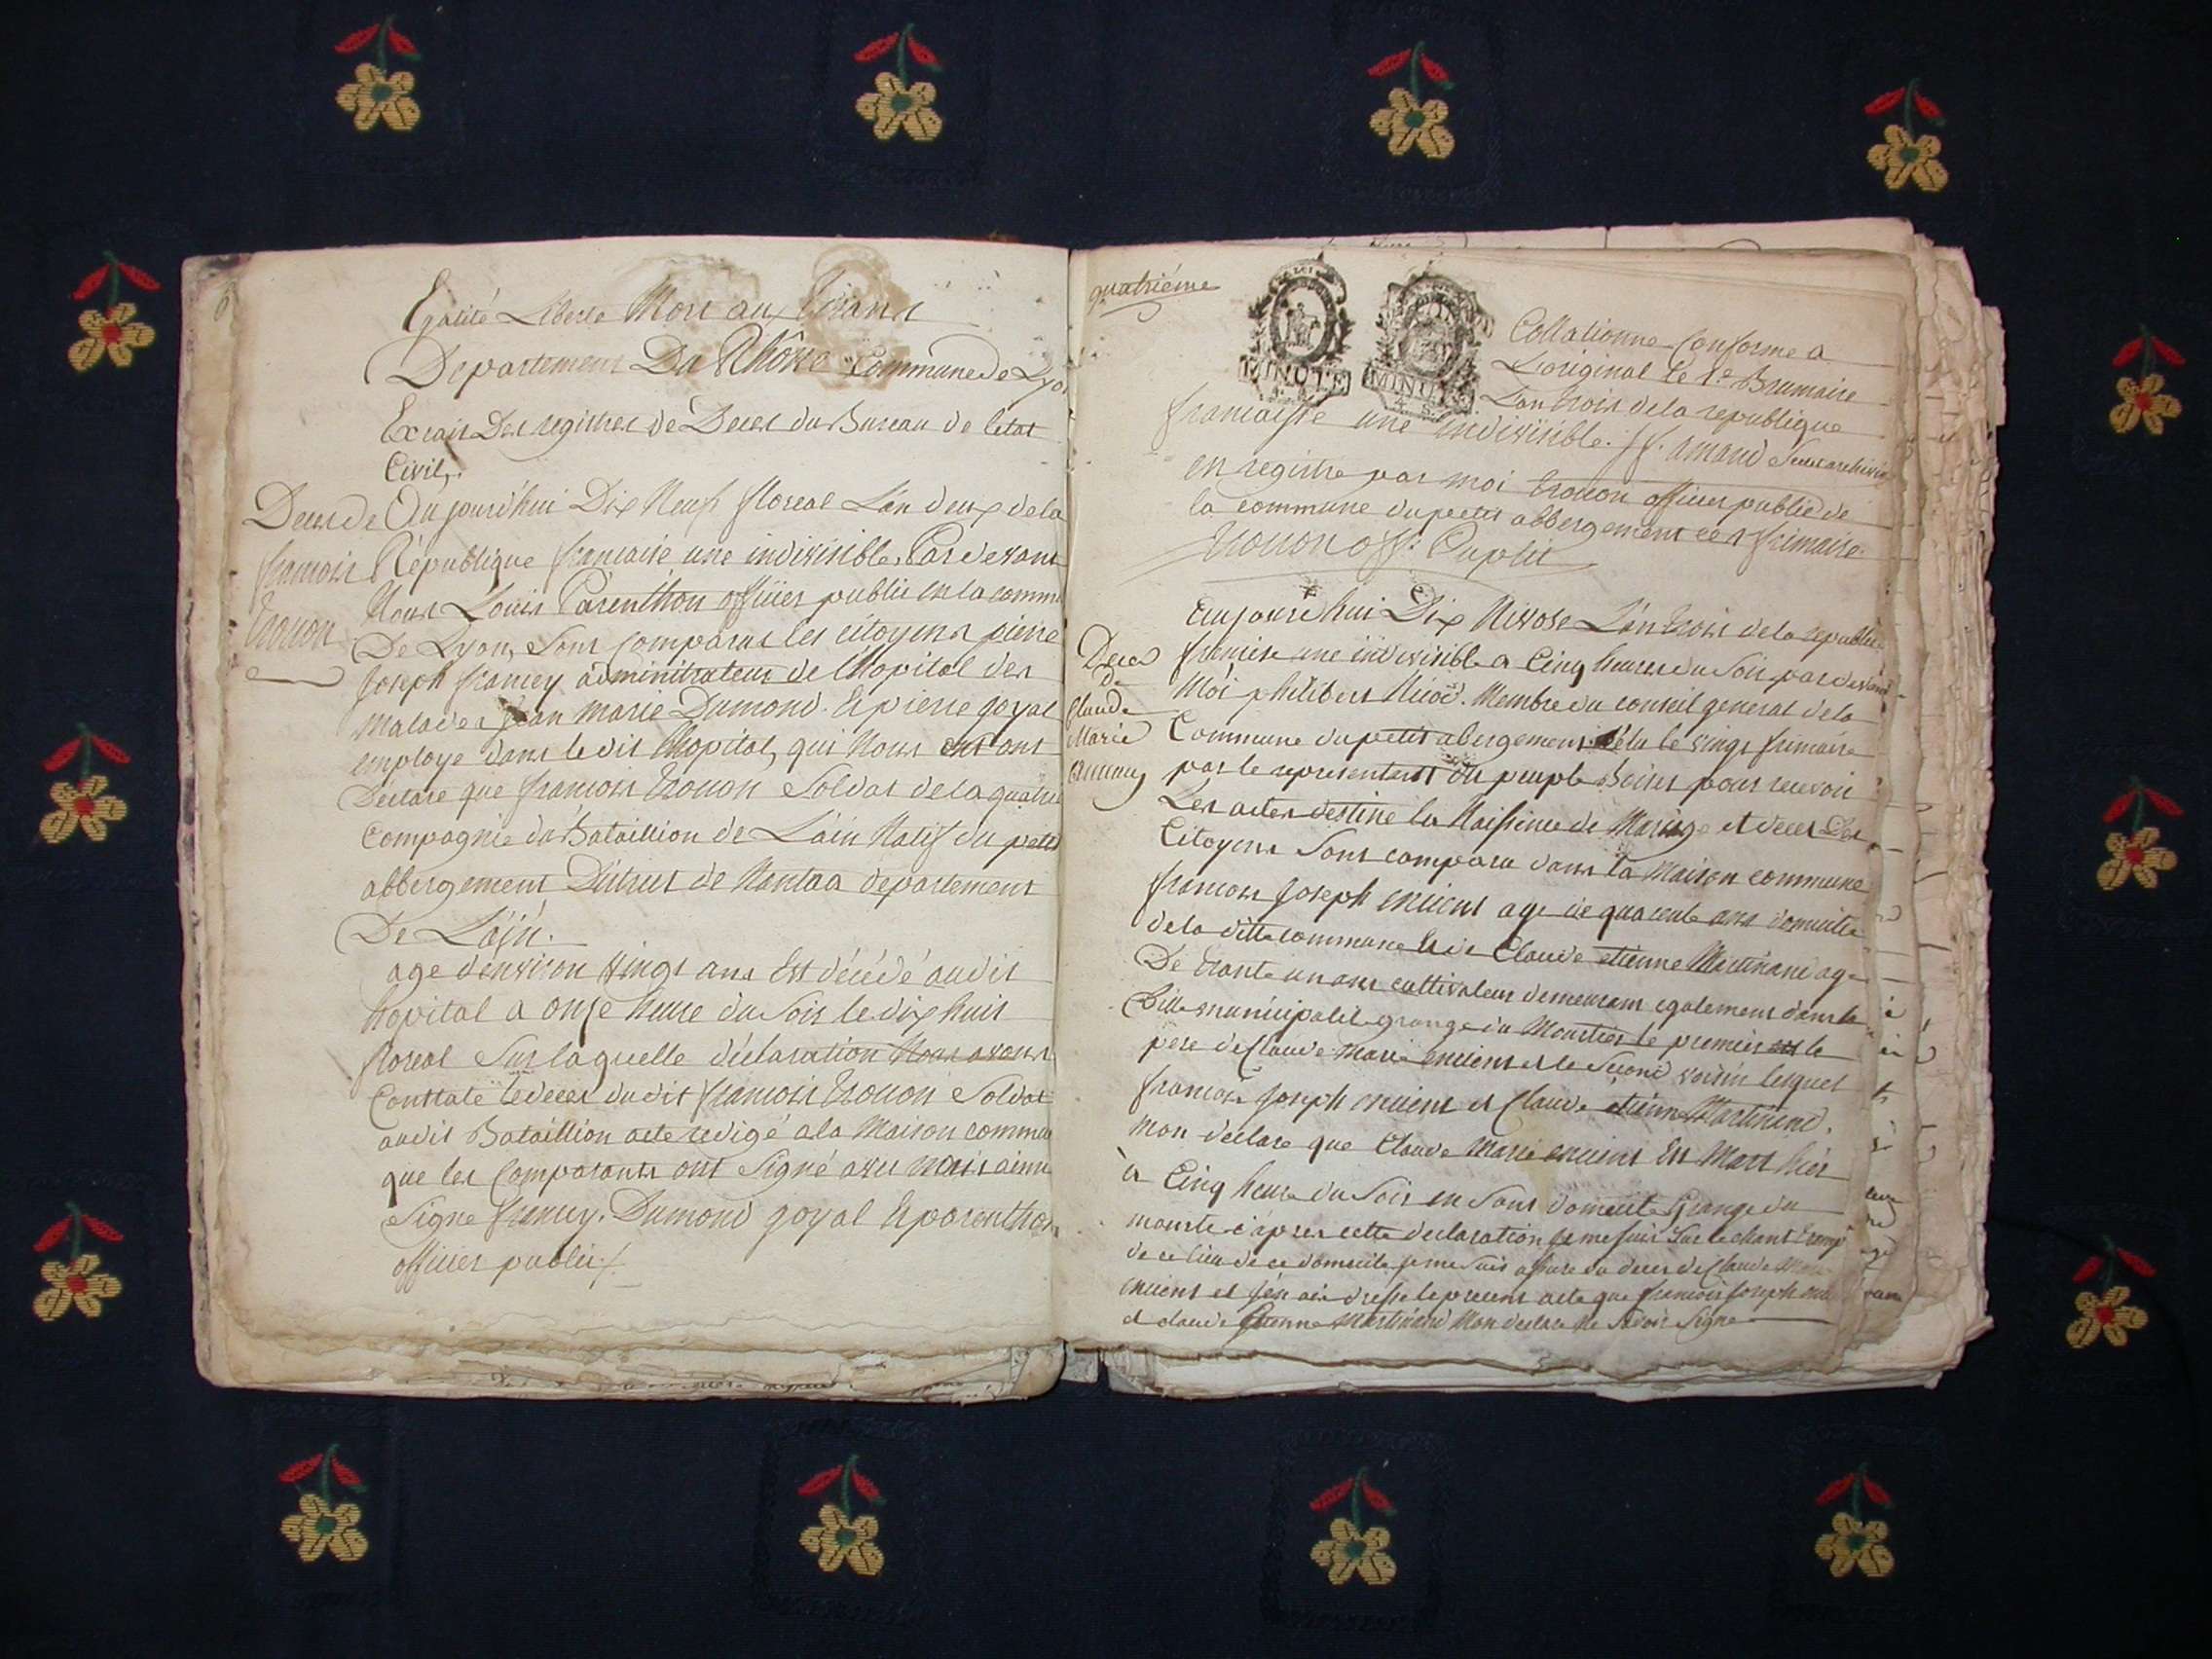 Egalité Liberte Mort aux Tirans
Departement Du Rhône Commune de Lyon
Extrait Des registres de Deces du Bureau de letat
Civil,.
Deces de
francois
trouon
Aujourdhui Dix Neuf floreal Lan deux de la
République francaise une indivisible, Pardevant
Nous Louis Parenthon officier public en la commu
De Lyon, Sont Comparus les citoyens pierre
Joseph francey administrateur de lhopital des
malades jean marie Dumond. Et pierre goyal
employe dans le dit lhopital, qui Nous ont
Declare que francois trouon Soldat de la quatrie
Compagnie du Bataillion de Lain Natif du petit
abbergement District de Nantua departement
De Lain.
age denviron vingt ans Est décédé audit
hopital a onze heure du Soir le dix huit
floreal Sur laquelle déclaration Nous avons
Constaté le deces dudit francois trouon Soldat
audit Bataillion acte redigé a la Maison commu
que les Comparants ont Signé avec
Signe francey. Dumond goyal Et parenthon
officier public
quatriéme
MINUTE
MINUTE
4. S.
Collationne Conforme a
Loriginal le 1e Brumaire
Lan trois de la republique
francaisse une indivisible. amand
en registre par moi trouon officier public de
la commune du petit abbergement ce frimaire.
trouon off.
Deces
de
Claude
Marie
Aujourdhui Dix Nivose Lan trois de la republi
une indivisible a Cinq heures du Soir pardevant
Moi philibert Nicod. Membre du conseil general de la
Commune du petit abergement élu le vingt frimaire
par le representent du peuple Boisset pour recevoir
Les actes destine les Naissence de Mariage et deces Des
Citoyens Sont comparu dans la Maison commune
francois Joseph age de quarente ans domicilie
de la ditte commune Et de Claude etienne Martinand age
De trante un ans cultivateur demeurant egalement dans la
Ditte municipalité grange du Moustier le premier le
pere de Claude Marie et le Second voisin lesquel
francois Joseph et Claude etienne Martinand.
mon declare que Claude Marie Est Mort hier
à Cinq heure du Soir en Sont domicile Grange du
d'apres cette declaration je me suis Sur le chant
de ce lieu de ce domicile je me Suis assure du deces de Claude Marie
et j'en ai dresse le present acte que francois Joseph
et claude Etienne Martinand Mon declare ne Savoir Signe